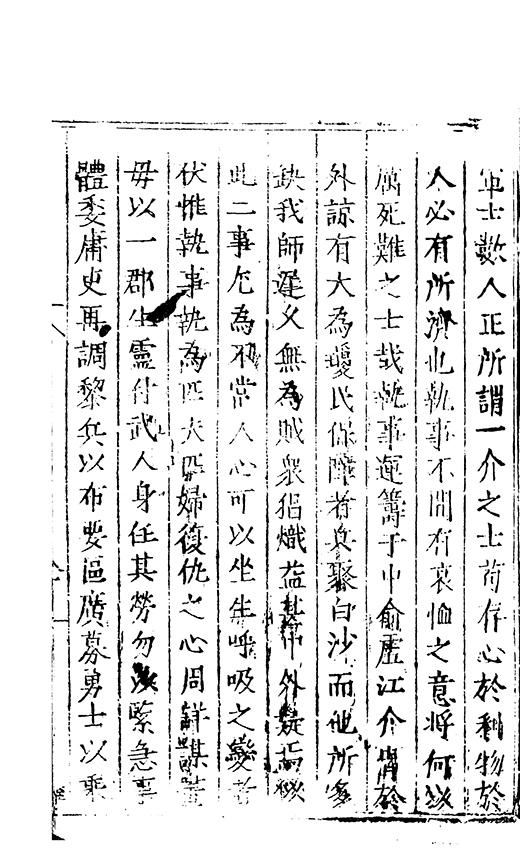 軍士數人正所謂一介之士苟存心於利物於
人必有所濟也執事不間有哀恤之意將何以
厲死難之士哉執事運籌于中俞虛江介冑於
外諒有大為瓊民保障者兵聚白沙而他所多
缺我師遲又無為賊衆猖熾益甚中外疑
此二事尤為不常人心可以坐生呼吸之變者
伏惟執事執為匹夫匹婦復仇之心周詳謀
毋以一郡生靈付武人身任其勞勿緊急事
體委庸吏再調黎兵以布要區廣募勇士以乘